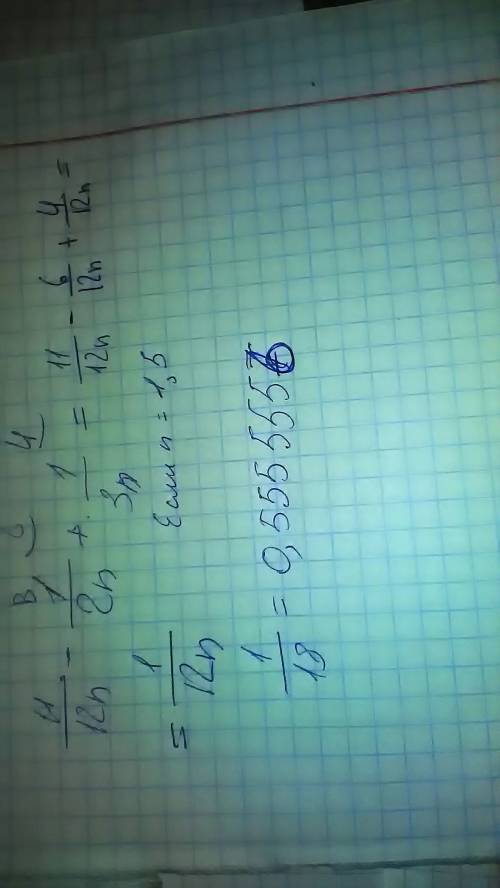 11/12n - 1/2n + 1/3n = 11/12n - 6/12n + 4/12n =
= 1/12n Если n = 1,5
1/18 = 0,5555556